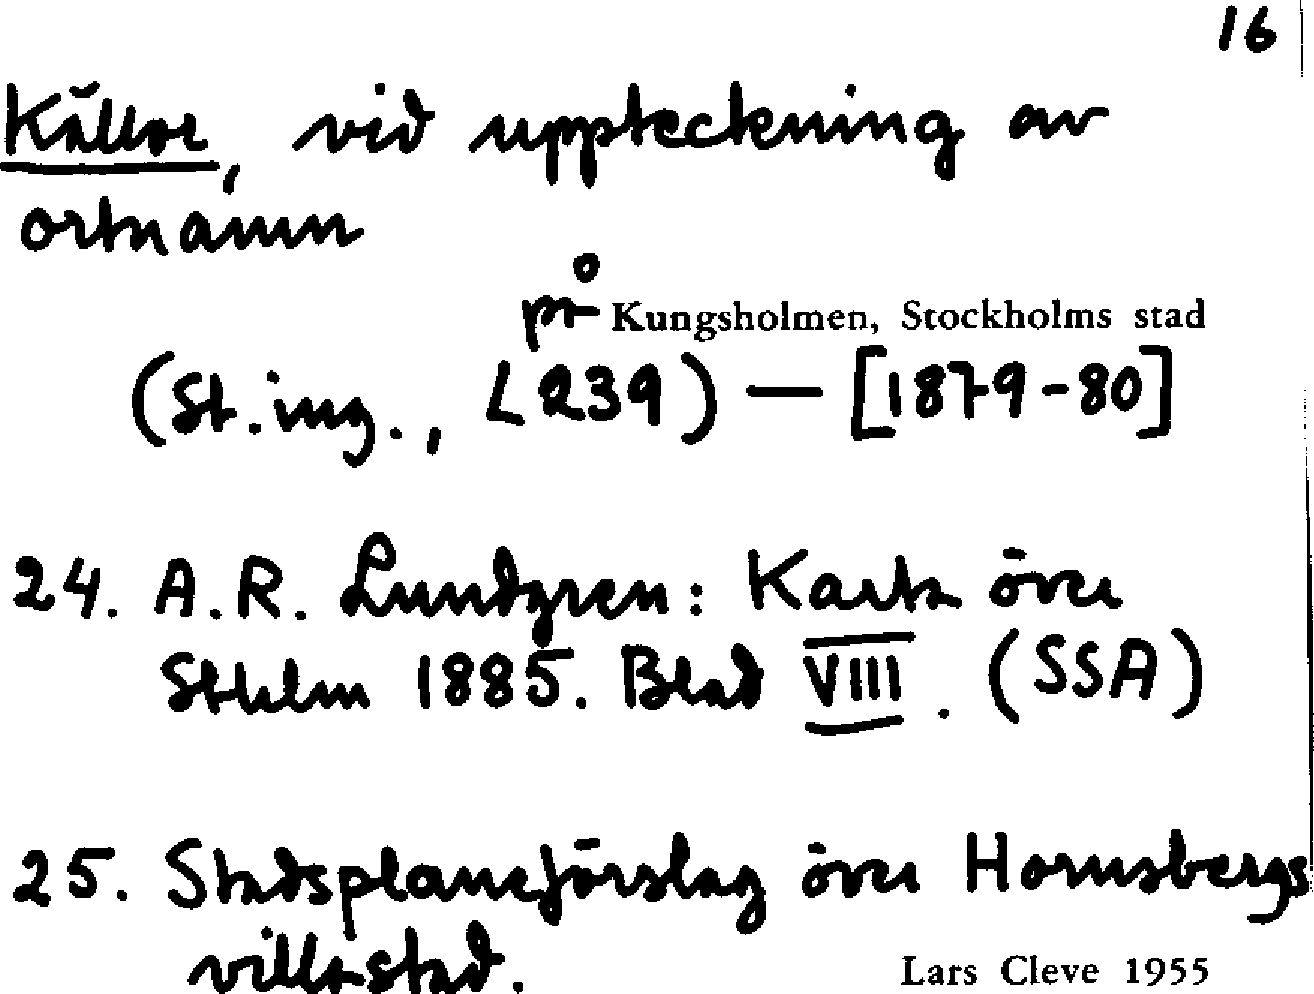 16
Källor, vid uppteckning av
ortnamn
på Kungsholmen, Stockholms stad
(St.ing., L239) — [1879-80]
24. A.R. Lundgren: Karta över
Sthlm 1885. Blad VIII. (SSA)
25. Stadsplaneförslag över Hornsbergs
villastad.
Lars Cleve 1955